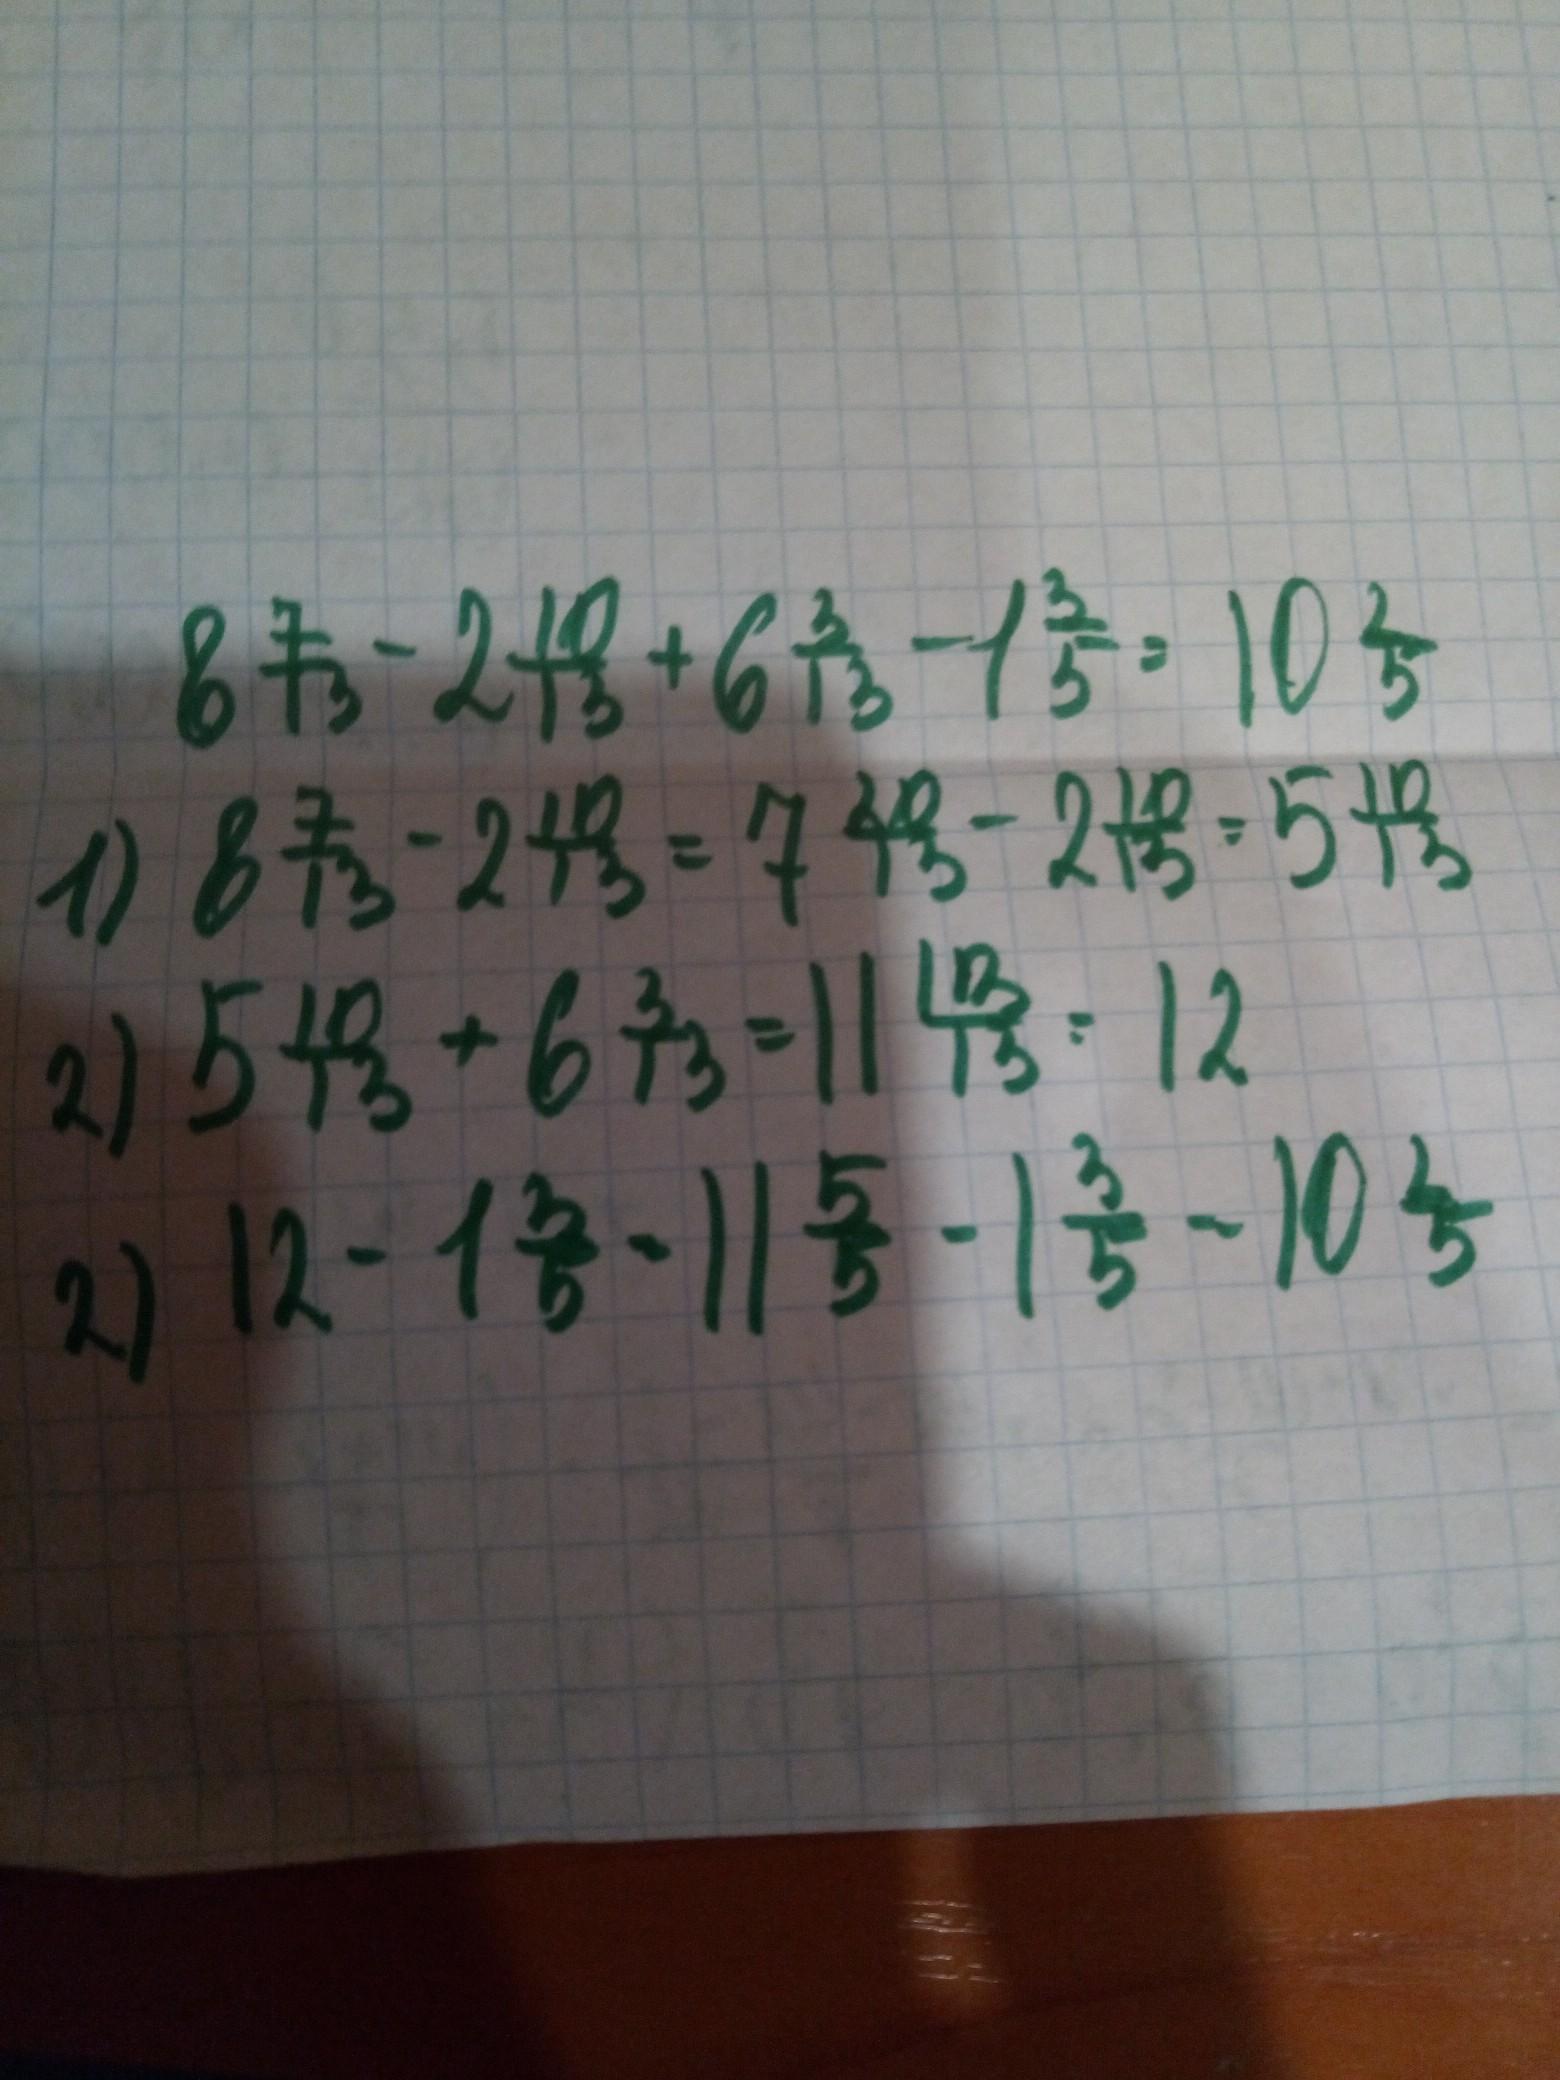 8 7/13 - 2 10/13 + 6 3/13 - 1 3/5 = 10 2/5
1) 8 7/13 - 2 10/13 = 7 20/13 - 2 10/13 = 5 10/13
2) 5 10/13 + 6 3/13 = 11 13/13 = 12
2) 12 - 1 3/5 - 11 5/5 - 1 3/5 - 10 2/5